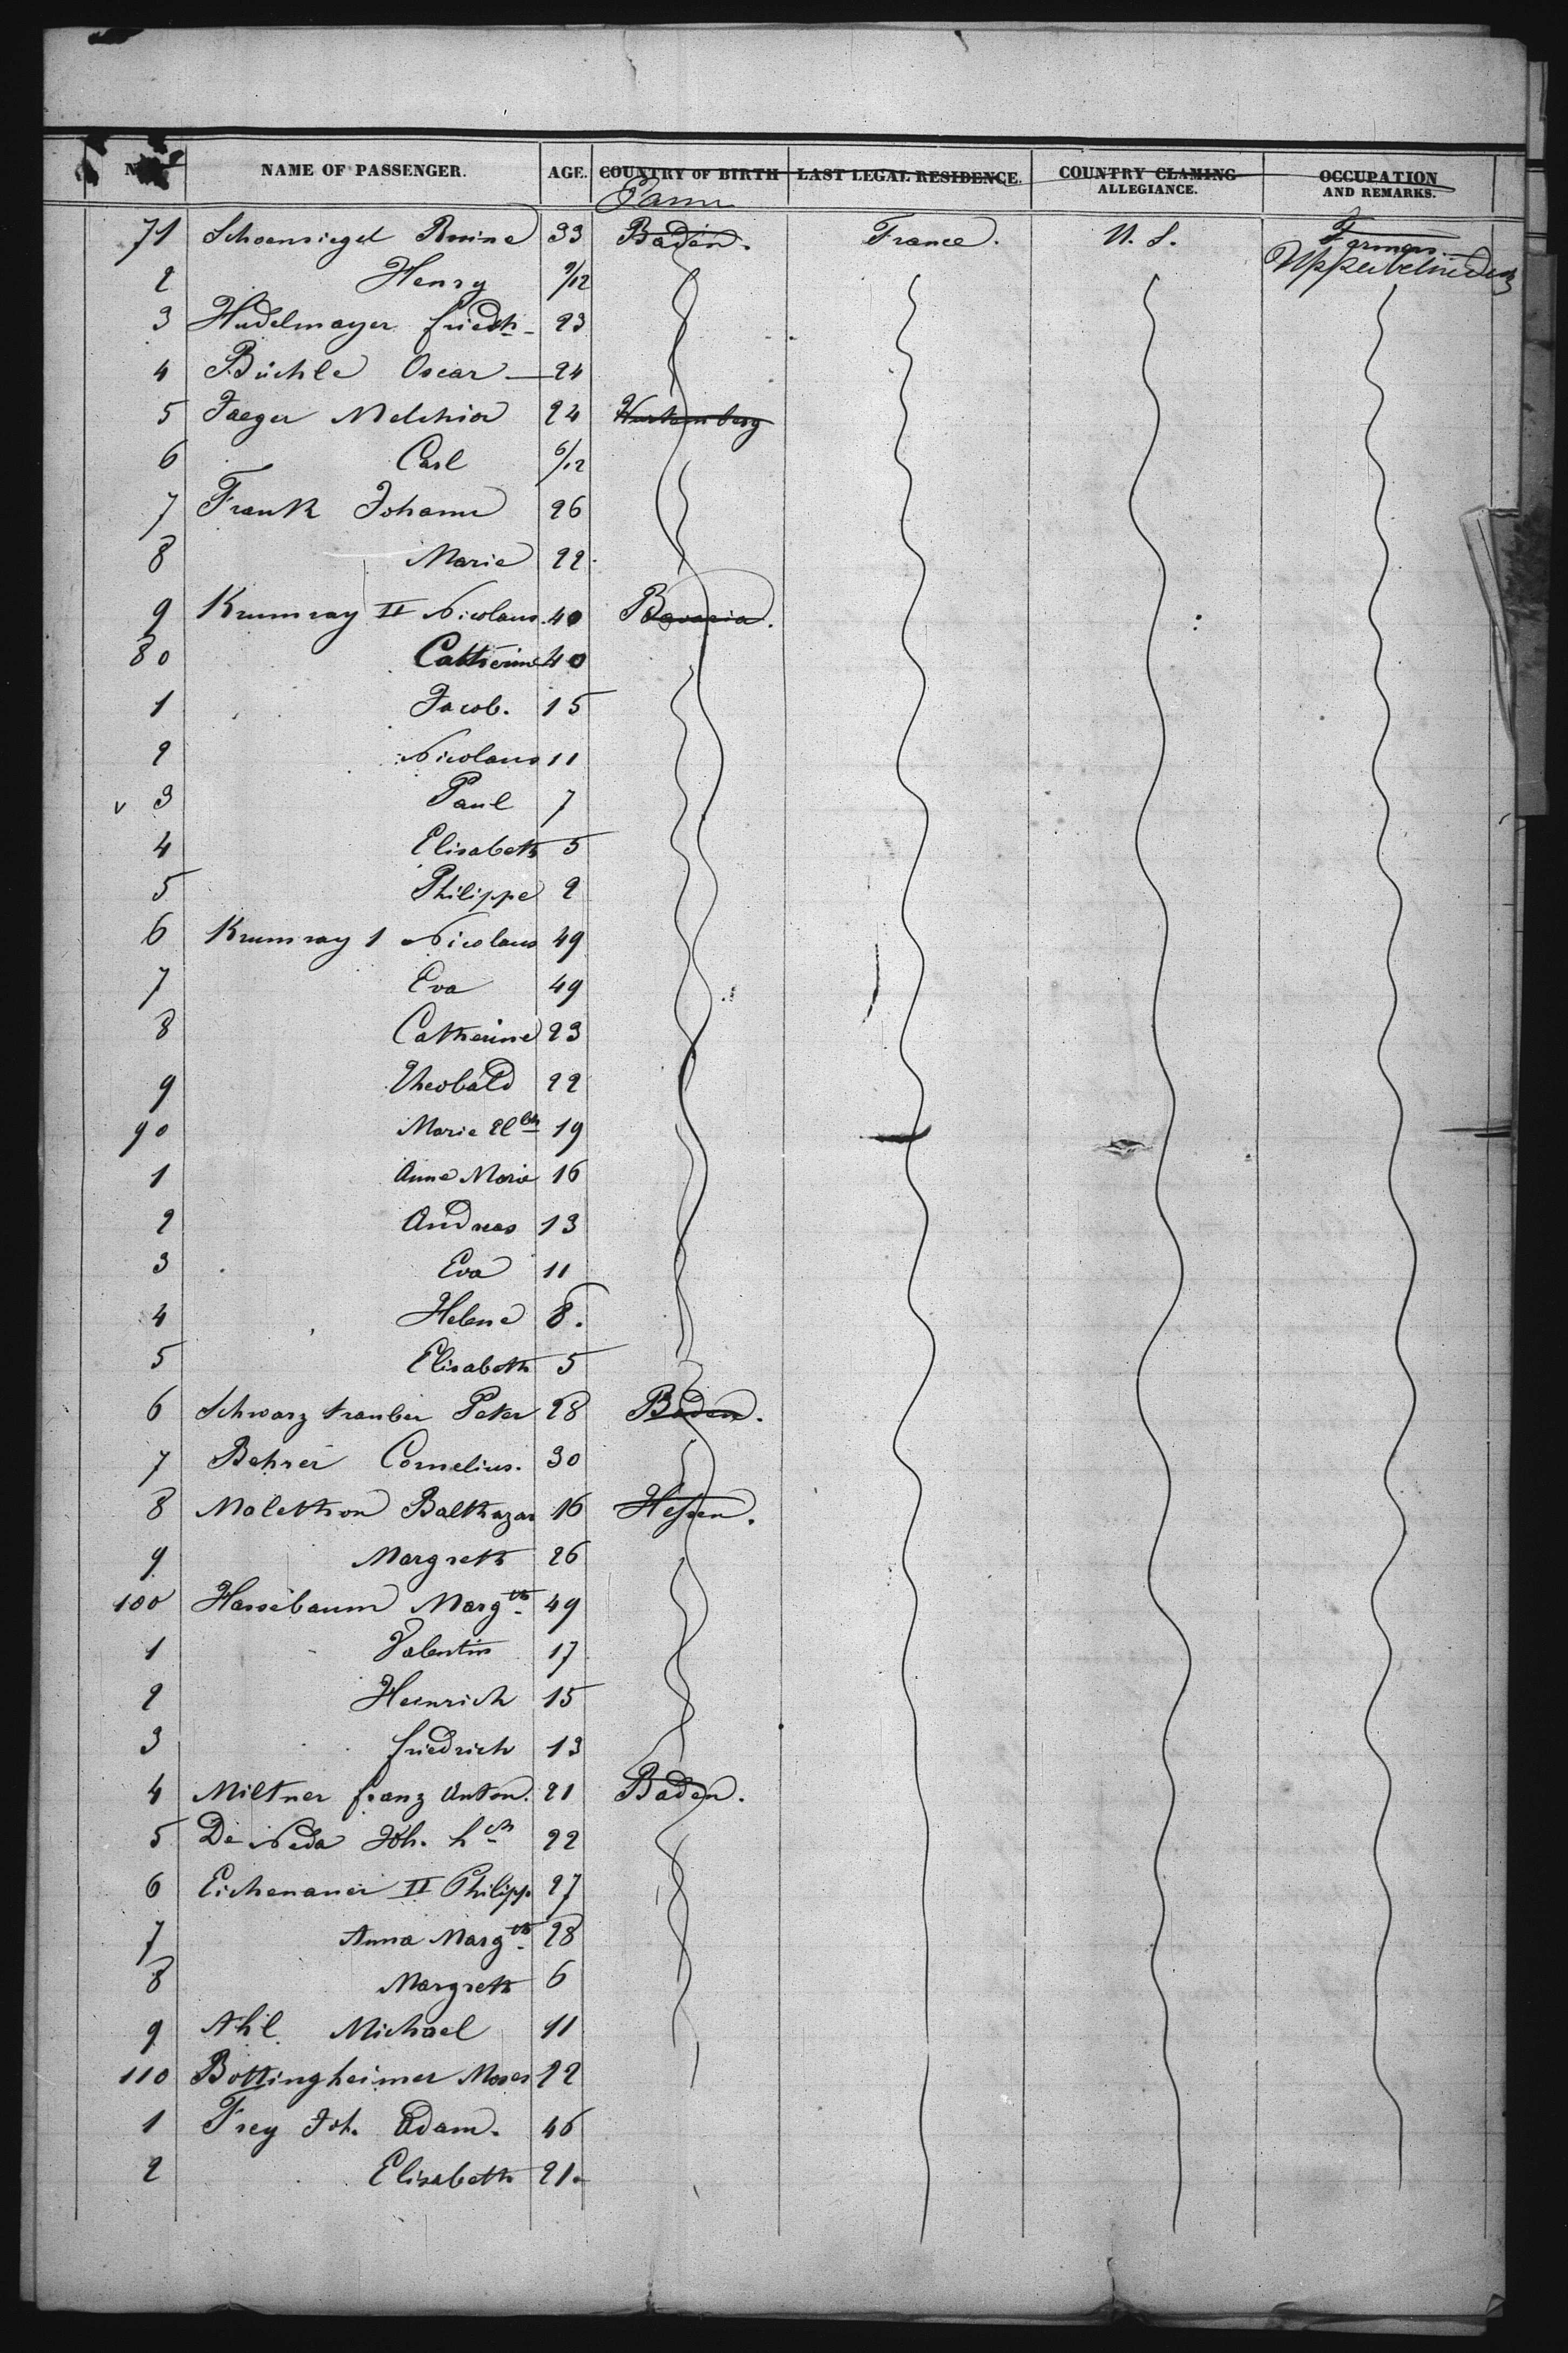 NAME OF PASSENGER. AGE. COUNTRY OF BIRTH LAST LEGAL RESIDENCE. COUNTRY CLAMING ALLEGIANCE. OCCUPATION AND REMARKS.
71 Schoensiegel 33 Baden. France. U. S. Farmers.
2 Henry 9/12
3 Hudelmayer friedch 23
4 Büchle Oscar 24
5 Jaeger Melchior 24 Wurtemberg
6 Carl 6/12
7 Frank Johann 26
8 Marie 22
9 Krumray II Nicolaus 40 Bavaria.
80 Catherine 40
1 Jacob. 15
2 Nicolaus 11
v 3 Paul 7
4 Elisabeth 5
5 Philippe 2
6 Krumray 1 Nicolaus 49
7 Eva 49
8 Catherine 23
9 Theobald 22
90 Marie Elbth 19
1 Anna Marie 16
2 Andreas 13
3 Eva 11
4 Helene 8.
5 Elisabeth 5
6 Schwarztrauber Peter 28 Baden.
7 Behrer Cornelius. 30
8 Molethon Balthazar 16 Hessen.
9 Margreth 26
100 Hassebaum Margth 49
1 Valentin 17
2 Heinrich 15
3 friedrich 13
4 Miltner franz Anton. 21 Baden.
5 De Neda Joh. hch 22
6 Eichenauer II Philipp 27
7 Anna Margth 28
8 Margreth 6
9 Ahl Michael 11
110 Bottingheimer Moses 22
1 Frey Joh. Adam. 46
2 Elisabeth 21.